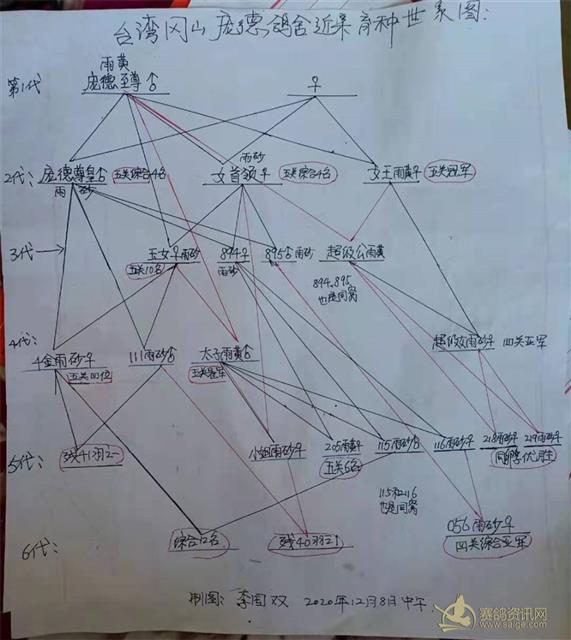 台湾冈山庞德鸽舍近来育种世系图:
第1代
雨黄
庞德至尊♂
♀
2代:
庞德尊皇♂
五关综合4名
雨砂
雨砂
女首领♀
五关综合4名
女王雨黄♀
五关冠军
3代
玉女♀雨砂
五关10名
894♀
雨砂
895♂雨砂
超级公雨黄
894.895
也是同窝
4代:
千金雨砂♀
五关100位
111雨砂♂
太子雨黄♂
五关冠军
超级女雨砂♀
四关亚军
5代:
残41羽之一
小姐雨砂♀
205雨黄♀
五关6名
115雨砂♂
116雨砂♀
218雨砂♀
219雨砂♀
同胞优胜
115和116
也是同窝
6代:
综合12名
残40羽之1
056雨砂♀
四关综合亚军
制图: 李国双 2020年12月8日中午.
赛鸽资讯网
www.saige.com